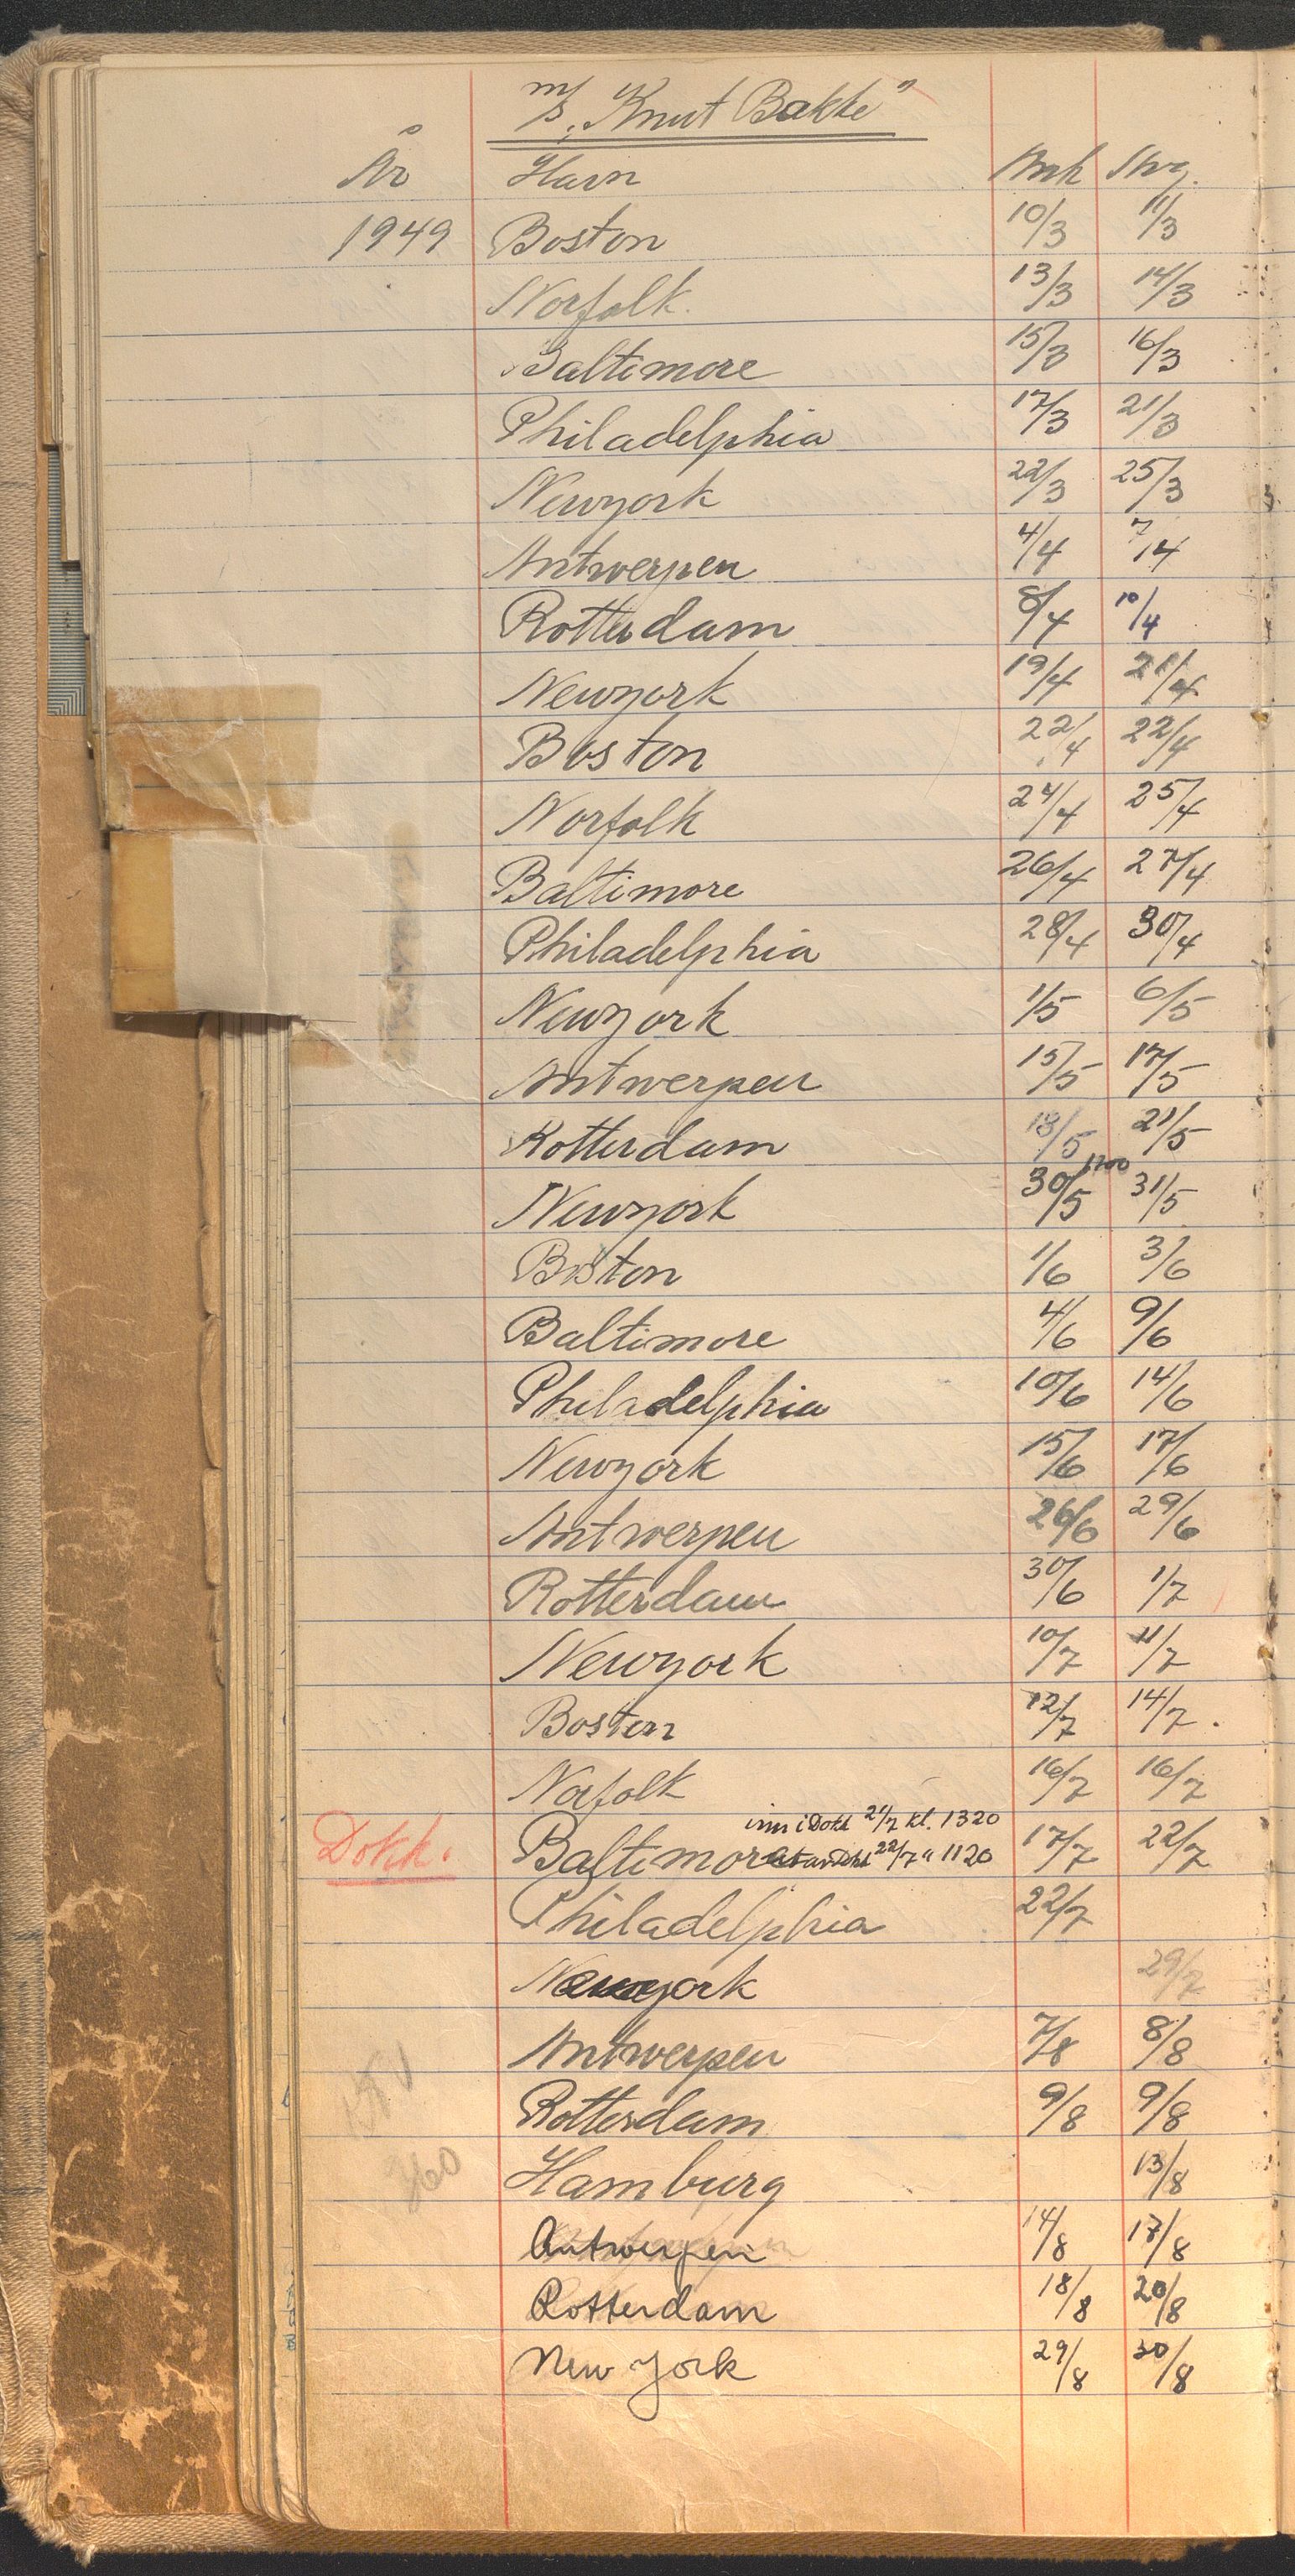 m/s. "Knut Bakke"
År Havn Ank Avg.
1949 Boston 10/3 11/3
Norfolk. 13/3 14/3
Baltimore 15/3 16/3
Philadelphia 17/3 21/3
Newyork 22/3 25/3
Antwerpen 4/4 7/4
Rotterdam 8/4 10/4
Newyork 19/4 21/4
Boston 22/4 22/4
Norfolk 24/4 25/4
Baltimore 26/4 27/4
Philadelphia 28/4 30/4
Newyork 1/5 6/5
Antwerpen 15/5 17/5
Rotterdam 18/5 21/5
Newyork 30/5 1700 31/5
Boston 1/6 3/6
Baltimore 4/6 9/6
Philadelphia 10/6 14/6
Newyork 15/6 17/6
Antwerpen 26/6 29/6
Rotterdam 30/6 1/7
Newyork 10/7 11/7
Boston 12/7 14/7.
Norfolk 16/7 16/7
inn i Dokk 21/7 kl. 1320
Dokk. Baltimore ut av Dokk 22/7 " 1120 17/7 22/7
Philadelphia 22/7
Newyork 29/7
Antwerpen 7/8 8/8
Rotterdam 9/8 9/8
Hamburg 13/8
Antwerpen 14/8 17/8
Rotterdam 18/8 20/8
New York 29/8 30/8